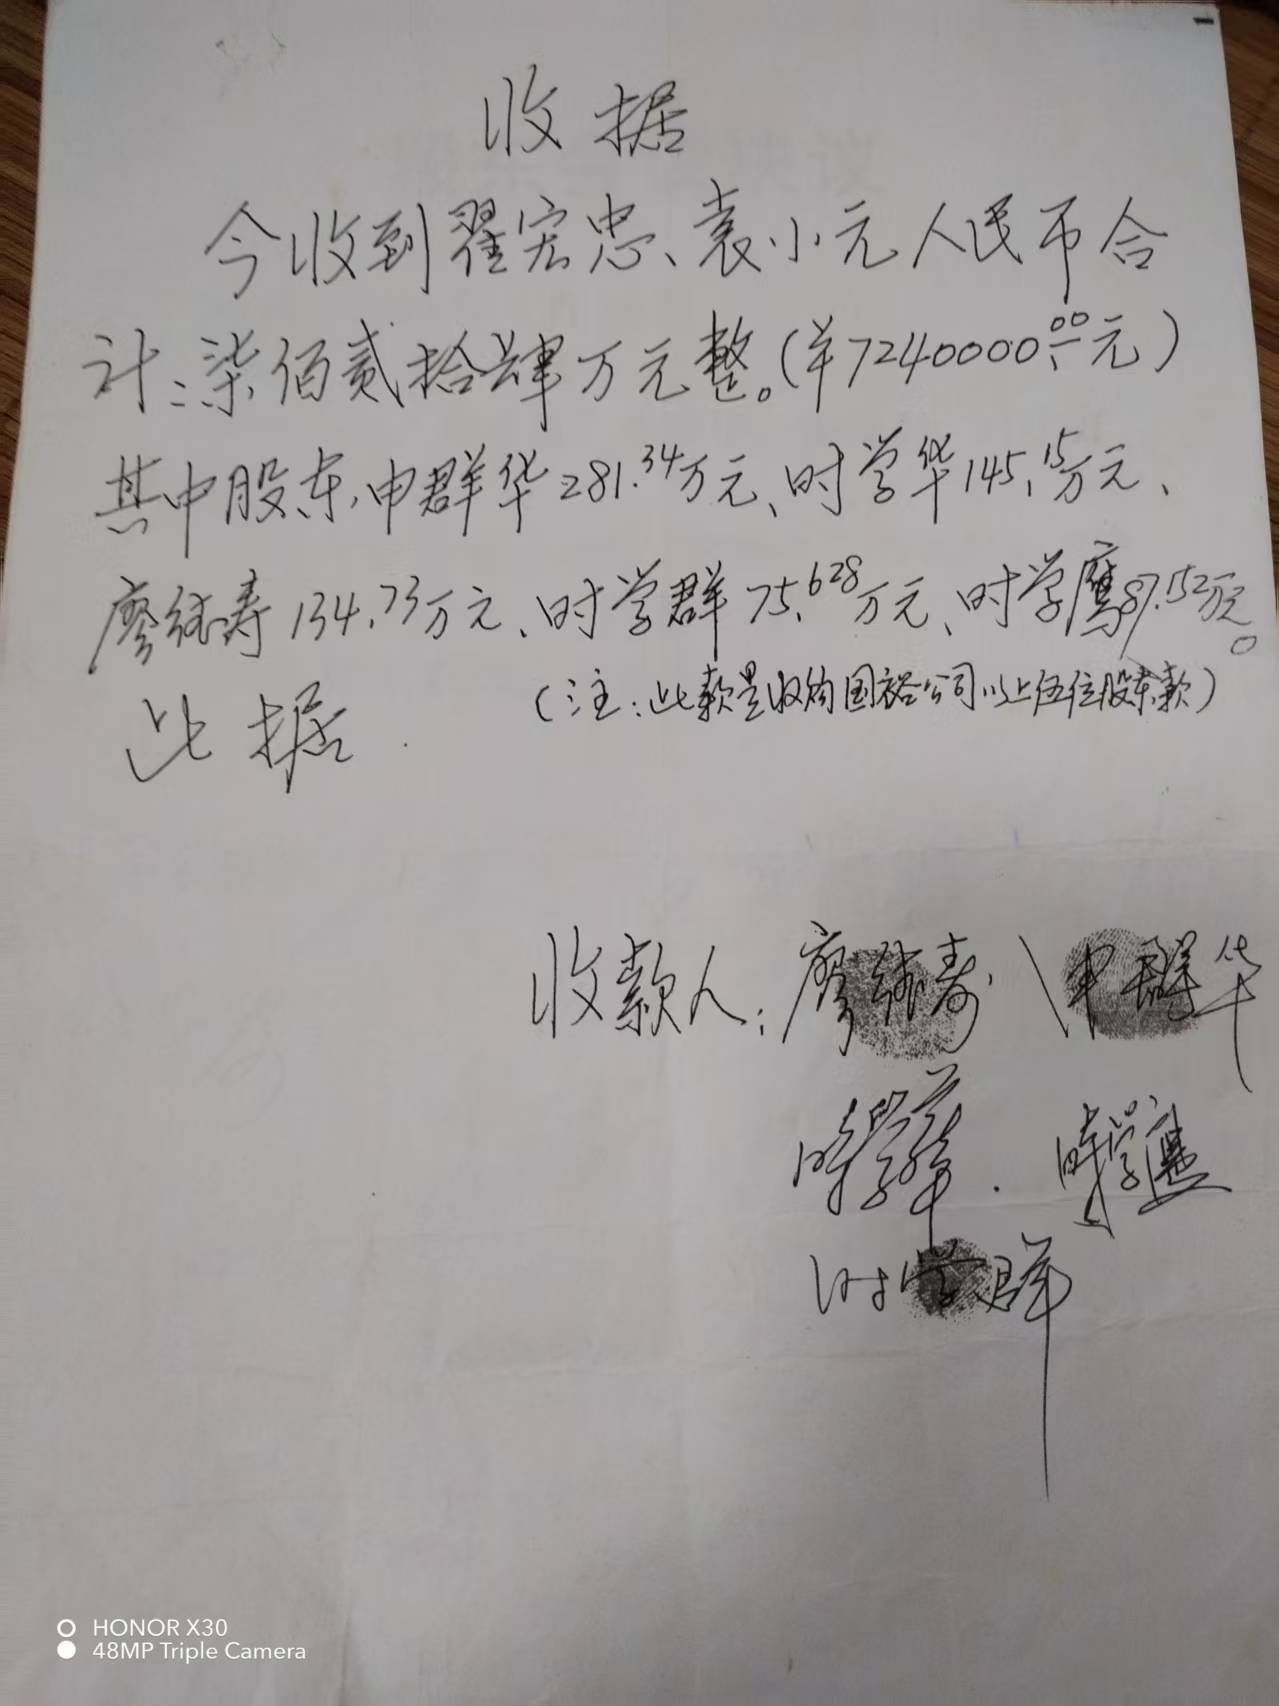 收据
今收到翟宏忠、袁小元人民币合
计:柒佰贰拾肆万元整。(¥7240000.00元)
其中股东,申群华281.34万元、时学华145.15万元、
廖继寿134.73万元、时学群75.628万元、时学鹰87.152万元。
(注:此款是收购国裕公司以上伍位股东款)
此据.
收款人:廖继寿 申群华
時學華. 時学鹰
时学群
HONOR X30
48MP Triple Camera